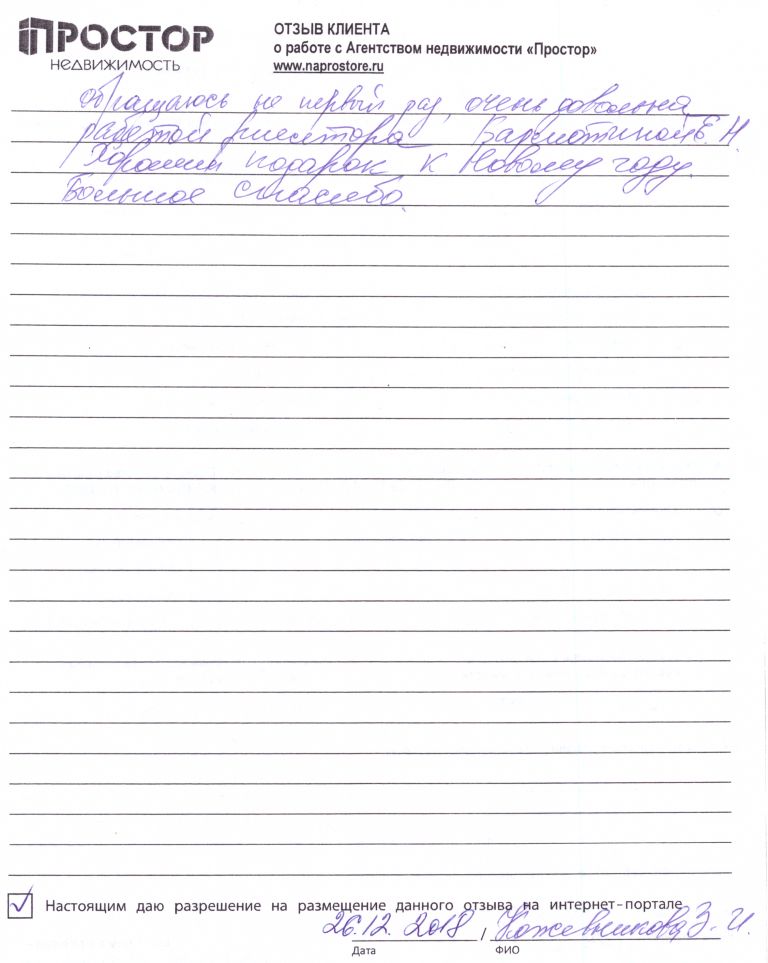 ПРОСТОР
НЕДВИЖИМОСТЬ
ОТЗЫВ КЛИЕНТА
о работе с Агентством недвижимости «Простор»
www.naprostore.ru
Обращаюсь не первый раз, очень довольна
работой риелтора Бармотиной Е. Н.
Хороший подарок к Новому году.
Большое спасибо.
Настоящим даю разрешение на размещение данного отзыва на интернет-портале
26.12. 2018 / Кожевникова З. И.
Дата ФИО